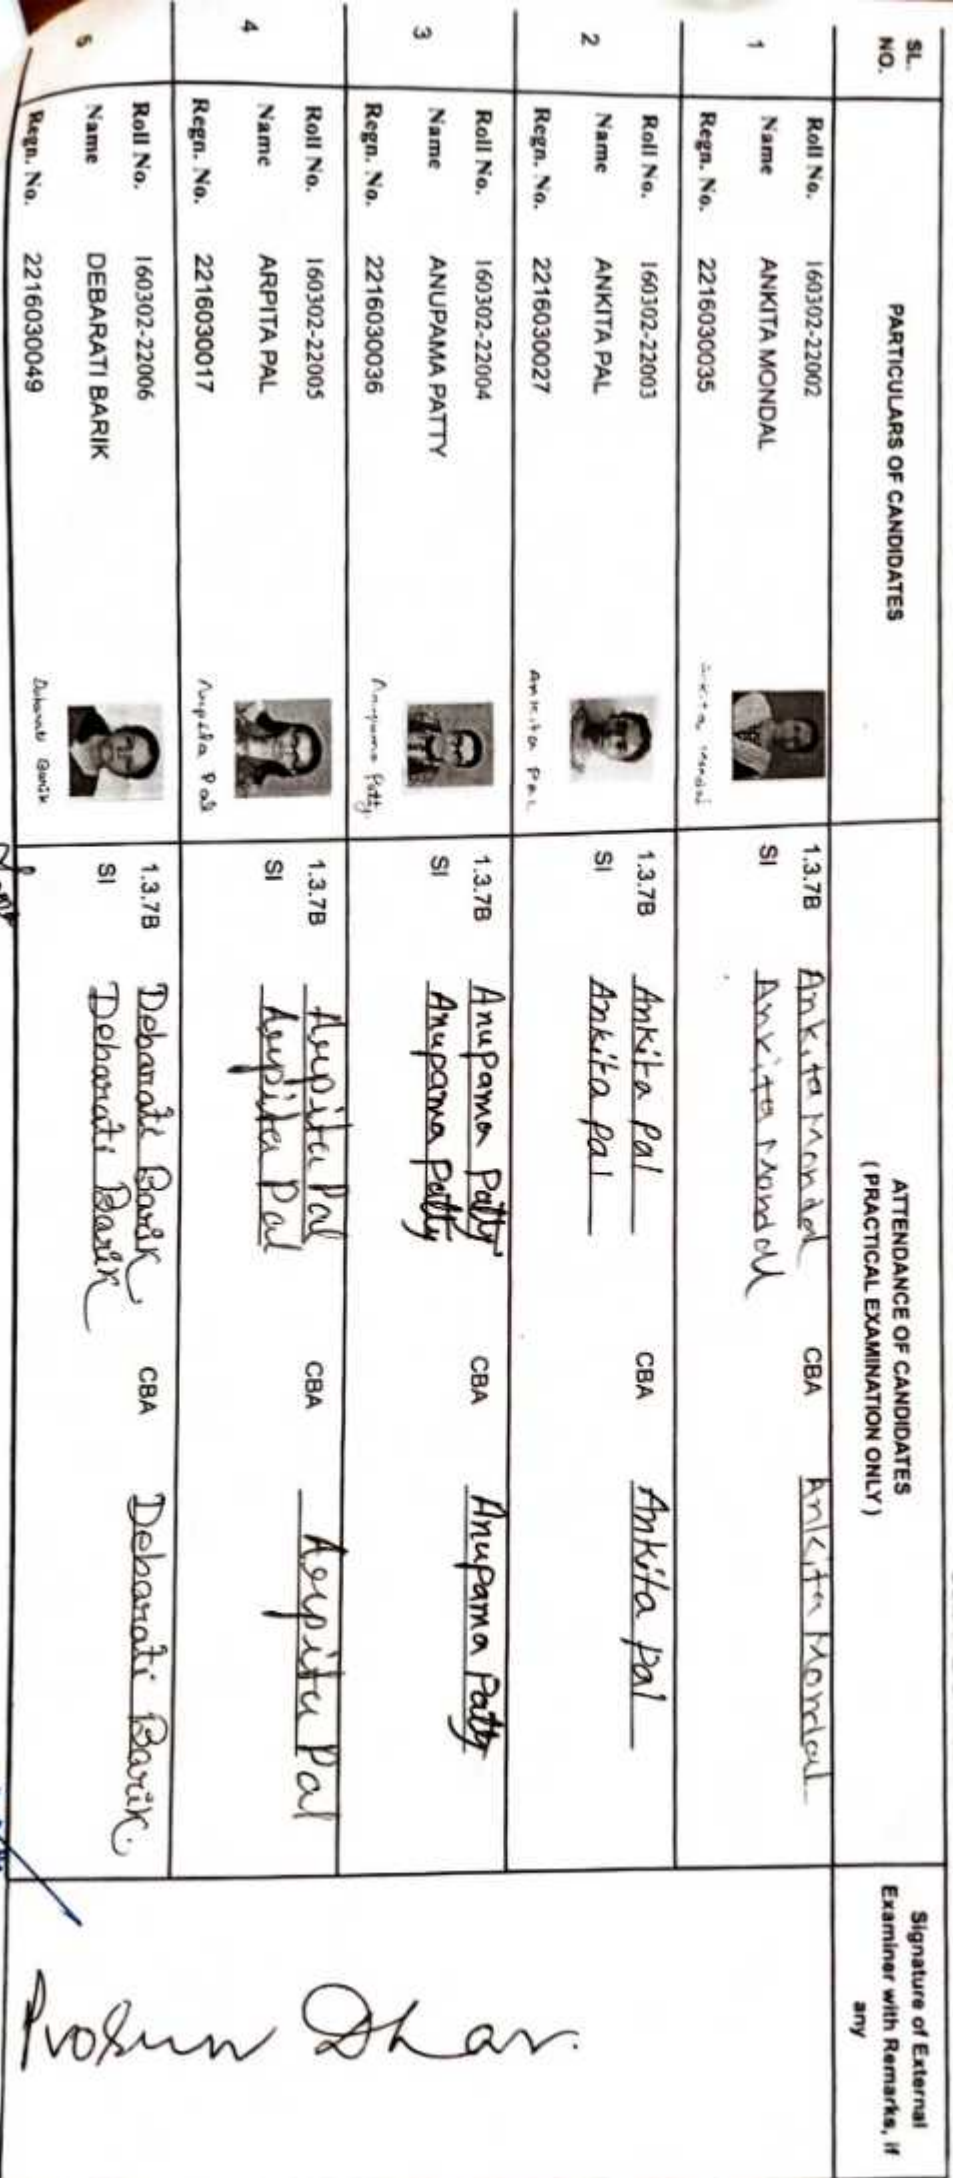 SL. NO.
PARTICULARS OF CANDIDATES
ATTENDANCE OF CANDIDATES
( PRACTICAL EXAMINATION ONLY )
Signature of External
Examiner with Remarks, if
any
1
Roll No. 160302-22002
Name ANKITA MONDAL
Regn. No. 2216030035
Ankita Mondal
1.3.7B Ankita Mondal CBA Ankita Mondal
SI Ankita Mondal
2
Roll No. 160302-22003
Name ANKITA PAL
Regn. No. 2216030027
Ankita Pal
1.3.7B Ankita Pal CBA Ankita Pal
SI Ankita Pal
3
Roll No. 160302-22004
Name ANUPAMA PATTY
Regn. No. 2216030036
Anupama Patty
1.3.7B Anupama Patty CBA Anupama Patty
SI Anupama Patty
4
Roll No. 160302-22005
Name ARPITA PAL
Regn. No. 2216030017
Arpita Pal
1.3.7B Arpita Pal CBA Arpita Pal
SI Arpita Pal
5
Roll No. 160302-22006
Name DEBARATI BARIK
Regn. No. 2216030049
Debarati Barik
1.3.7B Debarati Barik CBA Debarati Barik.
SI Debarati Barik
Prosun Dhar.